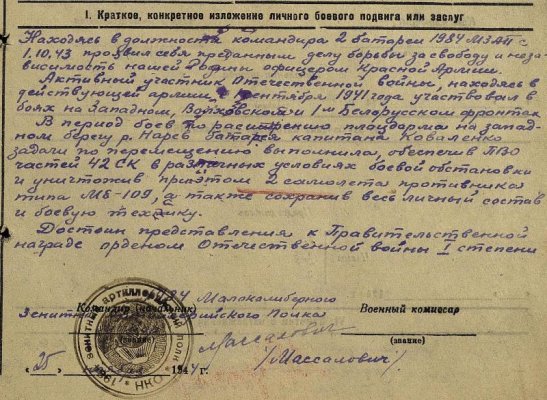 I. Краткое, конкретное изложение личного боевого подвига или заслуг
Находясь в должности командира 2 батареи 1984 МЗАП с
1.10.43 проявил себя преданным делу борьбы за свободу и неза-
висимость нашей Родины офицером Красной Армии.
Активный участник Отечественной войны, находясь в
действующей армии с сентября 1941 года участвовал в
боях на Западном, Волховском и 1м Белорусском фронтах
В период боев по расширению плацдарма на запад-
ном берегу р. Нарев батарея капитана Коваленко
задачи по перемещению выполнила, обеспечив ПВО
частей 42 СК в различных условиях боевой обстановки
и уничтожив при этом 2 самолета противника
типа МБ-109, а также сохранив весь личный состав
и боевую технику.
Достоин представления к Правительственной
награде орденом Отечественной войны I степени
Малокалиберного
Командир (начальник) Военный комиссар
Зенитного Полка
(звание) (звание)
Массалович
/Массалович/
"25" 1944 г.